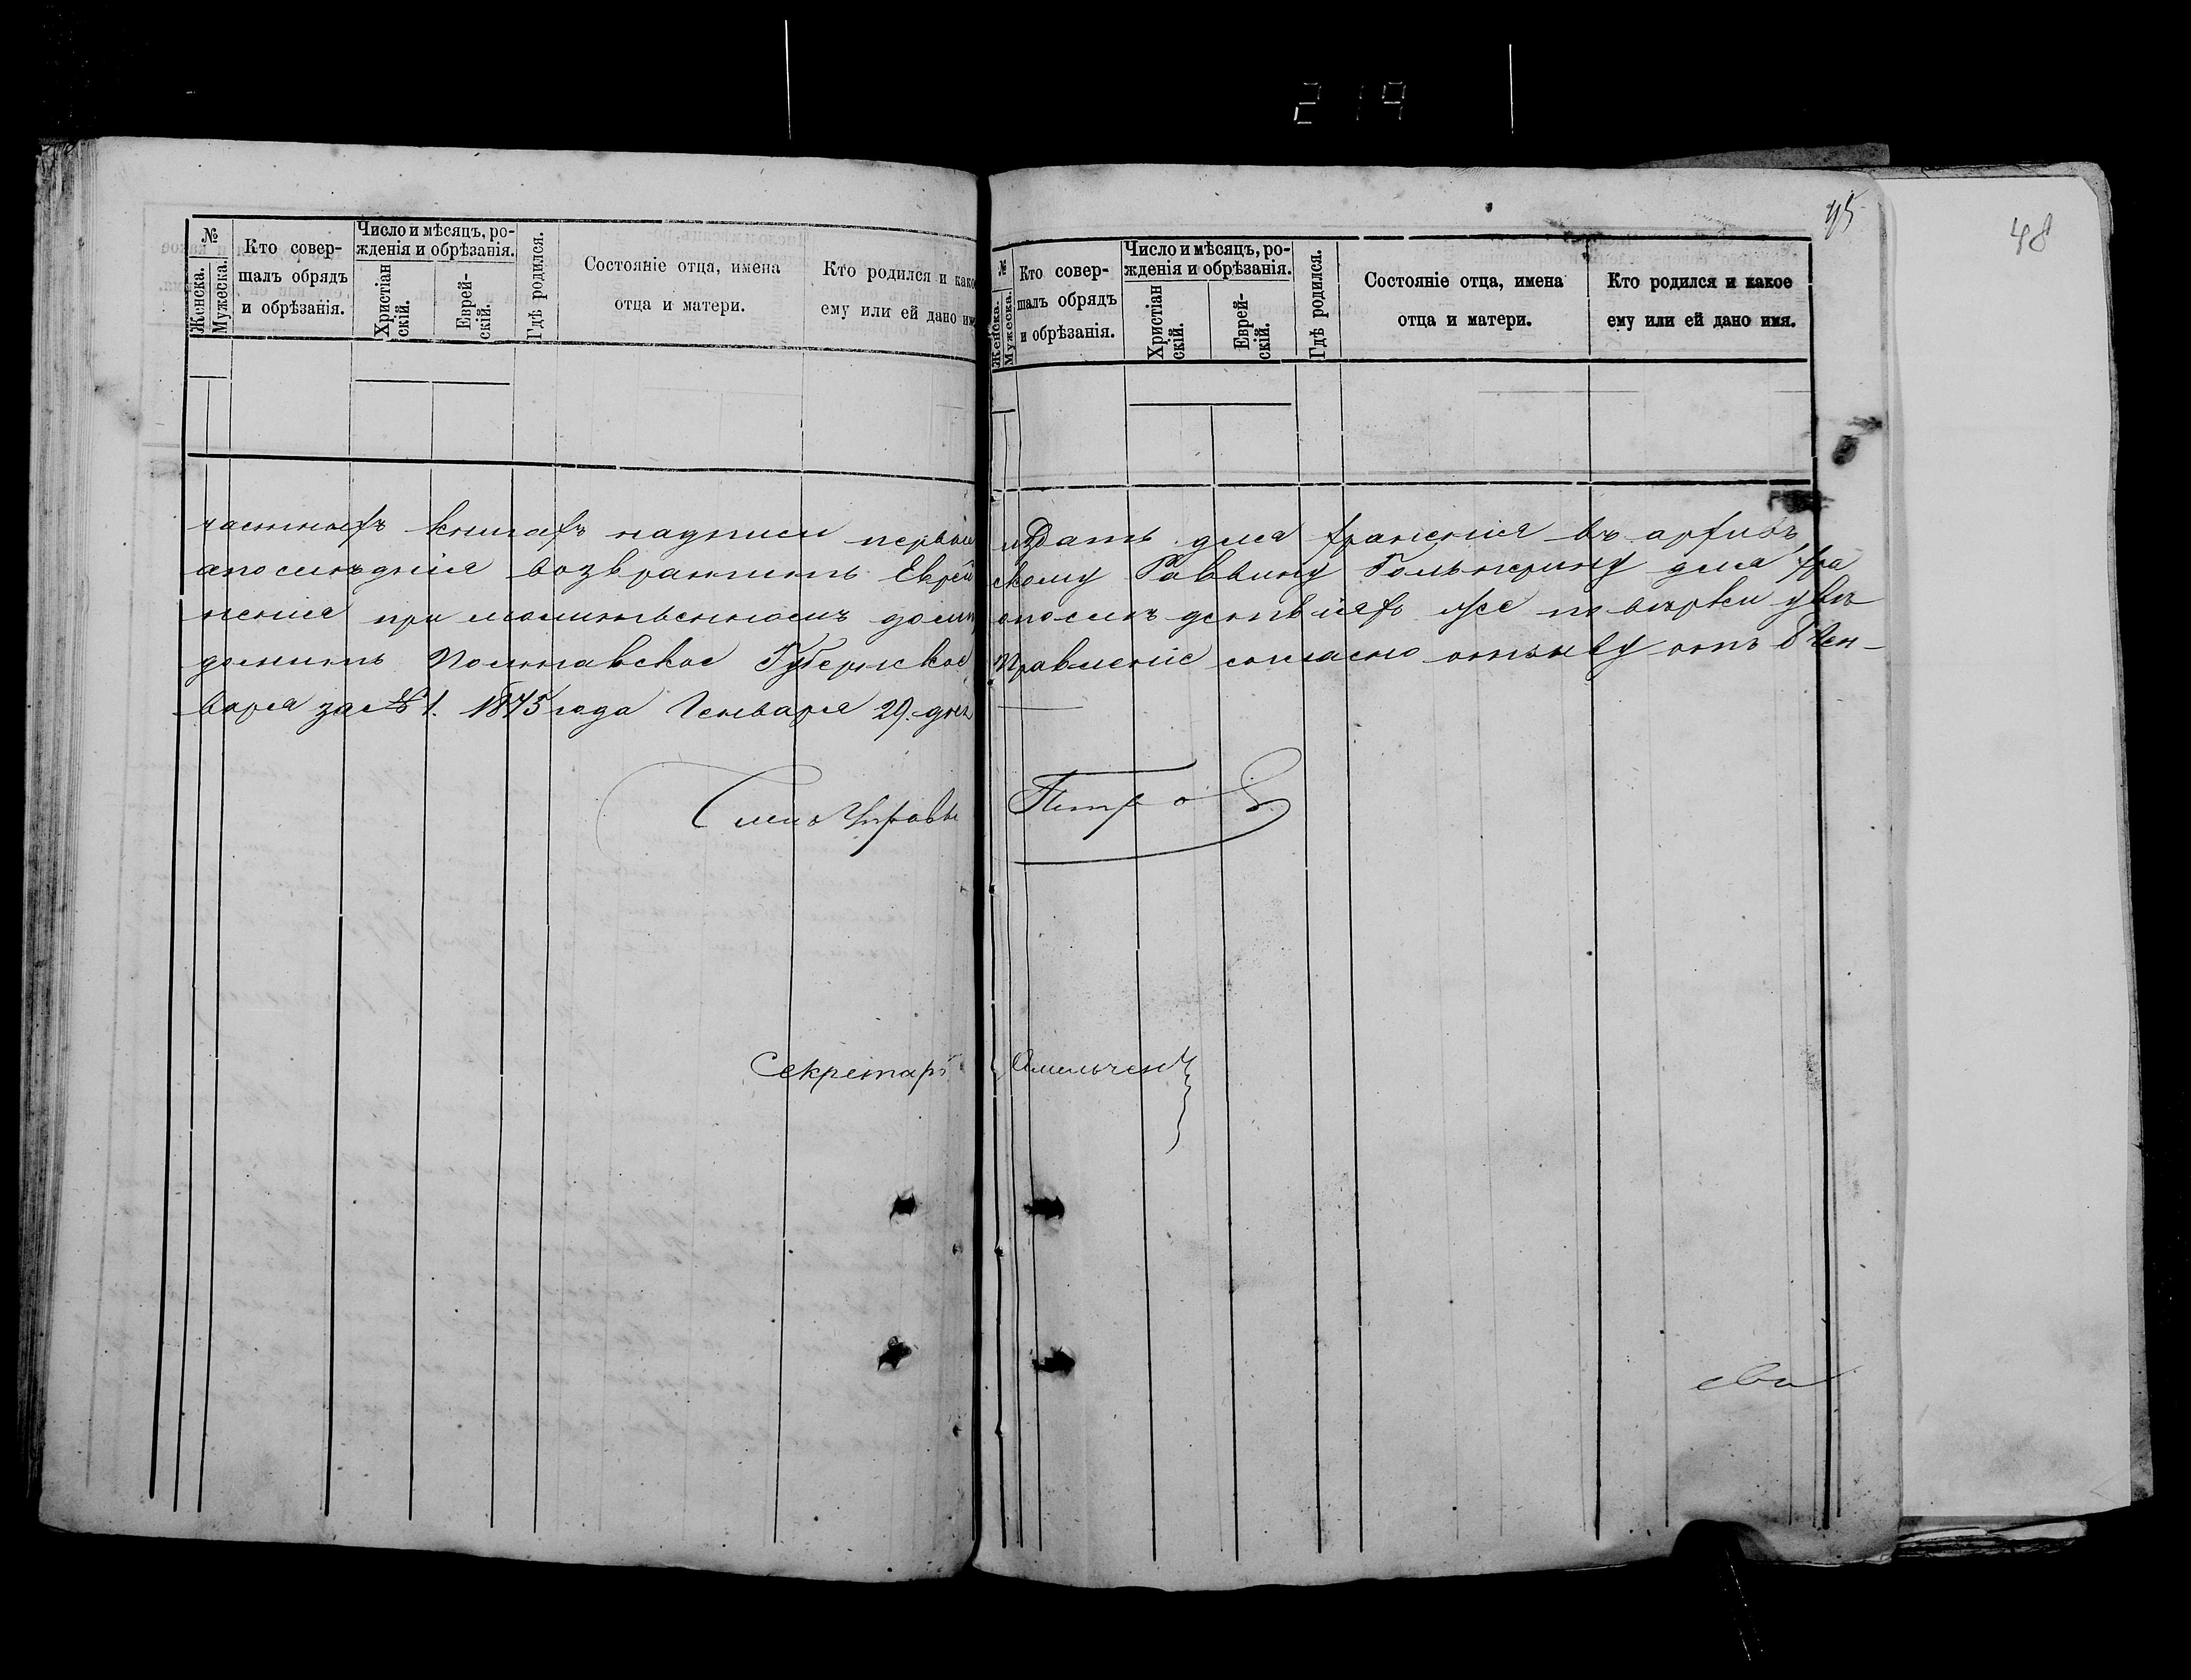 219
48
45
№
Женска.
Мужеска.
Кто совер-
шалъ обрядъ
и обрѣзанія.
Число и мѣсяцъ, ро-
жденія и обрѣзанія.
Христіан
скій.
Еврей-
скій.
Гдѣ родился.
Состояніе отца, имена
отца и матери.
Кто родился и како
ему или ей дано имя
№
Женска.
Мужеска.
Кто совер-
шалъ обрядъ
и обрѣзанія.
Число и мѣсяцъ, ро-
жденія и обрѣзанія.
Христіан
скій.
Еврей-
скій.
Гдѣ родился.
Состояніе отца, имена
отца и матери.
Кто родился и какое
ему или ей дано имя.
книгахъ надписи первый издать для храненія въ архивъ,
апослѣднія возвратить Еврейскому Раввину Гальперину для хра
ненія при молитвенномъ домѣ, же повѣрки увѣ
домить Полтавское Губернское Правленіе согласно отзыву отъ 8 Ген-
варя за № 1. 1875 года Генваря 29. дня
Членъ Управы Петров
Секретарь Омельченко